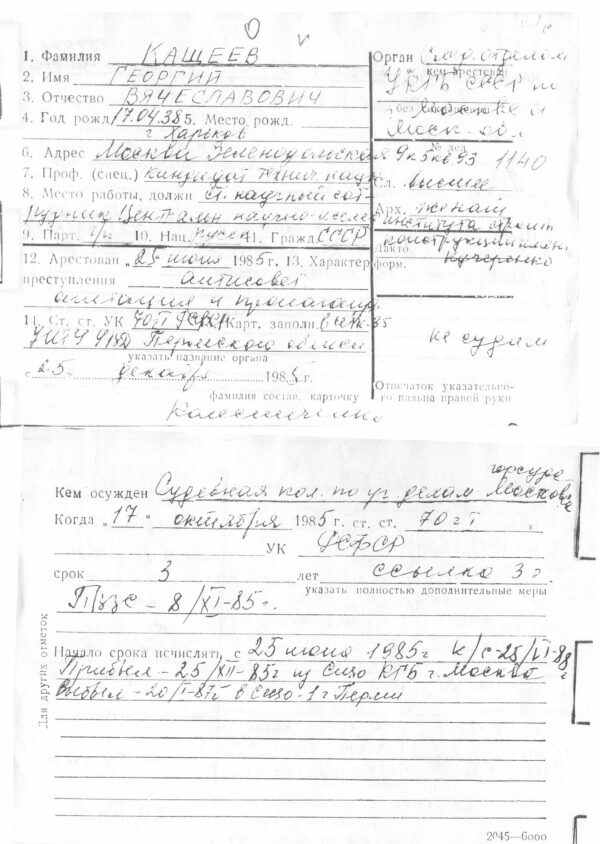 1. Фамилия КАЩЕЕВ
2. Имя ГЕОРГИЙ
3. Отчество ВЯЧЕСЛАВОВИЧ
4. Год рожд. 17.04.38 5. Место рожд.
г Харьков
6. Адрес Москва Зеленодольская 9 к5 кв 93
7. Проф. (спец.) Кандидат технич наук
8. Место работы, должн ст. научный сот-
рудник Централн научно-исслед
института строит
конструкций имени
Кучеренко
9. Парт. б/п 10. Нац. русск 11. Гражд СССР
12. Арестован „25" июня 1985г. 13. Характер
преступления антисовет
агитация и пропаганда
14. Ст. ст. УК 70 ч I РСФСР Карт. заполн. в
Пермского области
указать название органа
с 25 декабря 1985 г.
фамилия состав. карточку
Орган отделом
кем арестован
УКГБ СССР по
без
г Москве и
Моск. обл
№ дел 1140
Сл. высшее
Арх. женат
Дакто
форм.
не судим
Отпечаток указательно-
го пальца правой руки
Кем осужден Судебная кол. по уг. делам Мосгорсуда
Когда „17" октября 1985 г. ст. ст. 70 ч I
УК РСФСР
срок 3 лет ссылка 3 г.
указать полностью дополнительные меры
8/XI-85г.
Для других отметок
Начало срока исчислять с 25 июня 1985г к/с-25/VI-88г
Прибыл – 25/XII-85г из Сизо КГБ г. Москва
Выбыл – 20/I-87г в Сизо-1 г Перми
2045—6000